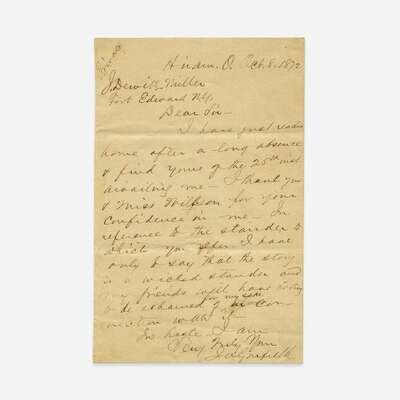 Private
Hiram, O. Oct. 8, 1872
J. Dewitt Miller
Fort Edward N.Y.
Dear Sir-
I have just reached
home after a long absence
& find yours of the 25th inst
awaiting me - I thank you
& Miss for your
confidence in me - In
reference to the slander to
which you refer I have
only to say that the story
is a wicked slander and
my friends will have nothing
to be ashamed of for my sake in con-
nection with it -
In haste I am
Very Truly Yours
J A Garfield